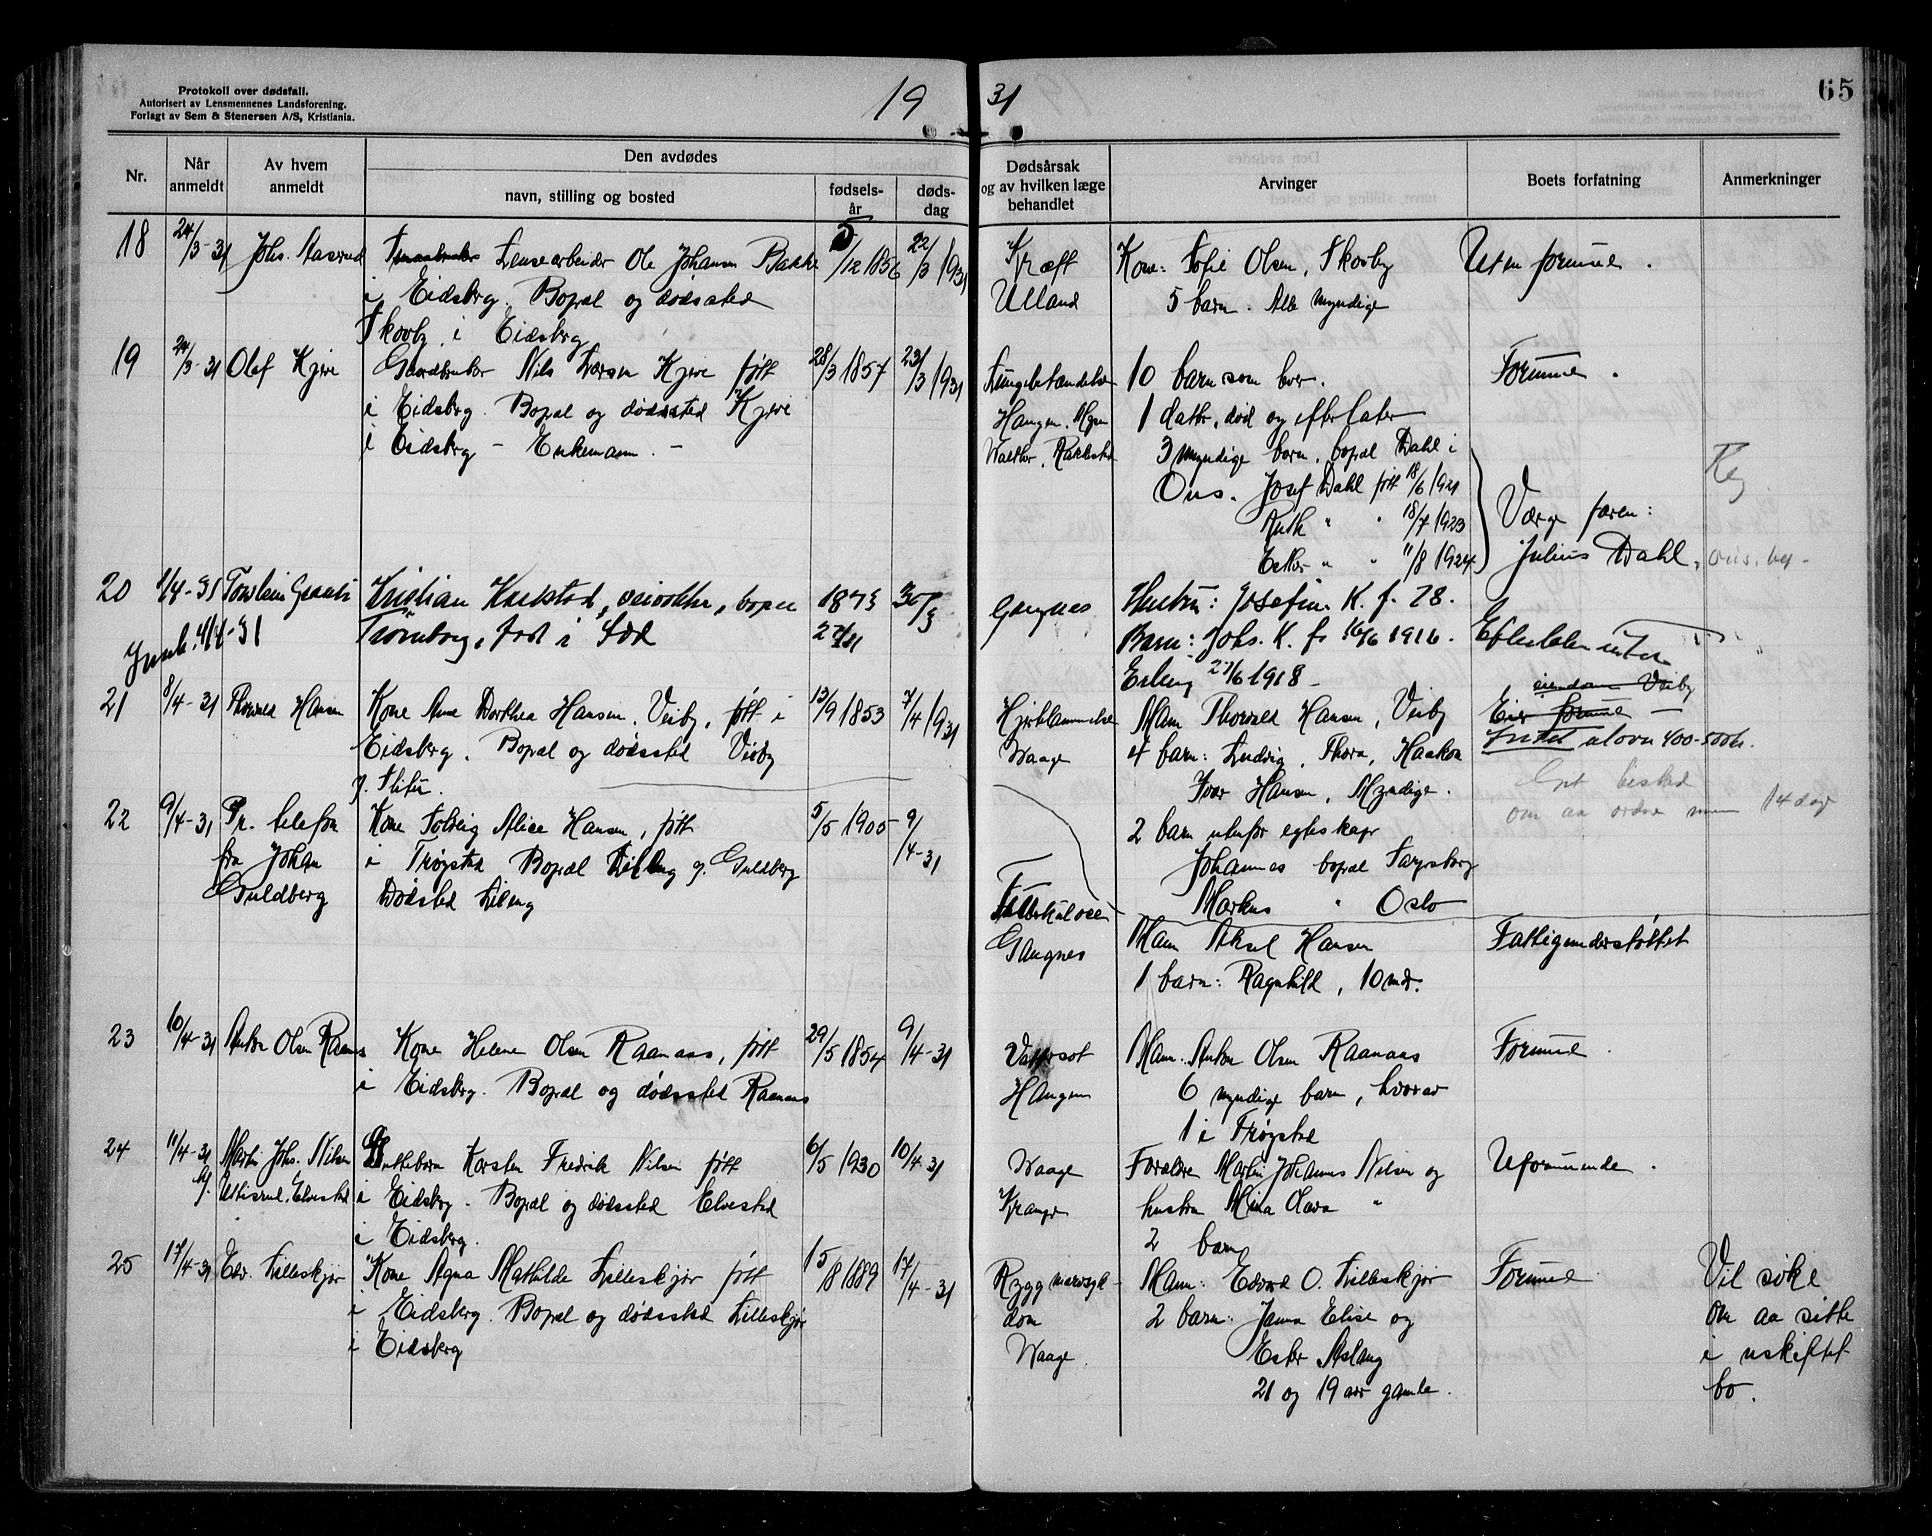 Protokoll over dødsfall.
Autorisert av Lensmennenes Landsforening.
Forlagt av Sem & Stenersen A/S, Kristiania.
19 31
65
Nr.
Når anmeldt
Av hvem anmeldt
Den avdødes
navn, stilling og bosted
fødsels-år
døds-dag
Dødsårsak og av hvilken læge behandlet
Arvinger
Boets forfatning
Anmerkninger
18 24/3-31 Johs. Aasrud Lensearbeider Ole Johansen Bakke 5/12 1856 22/3 1931 Kræft Kone: Sofie Olsen, Skovby Uten formue.
i Eidsberg. Bopæl og dødssted Ulland 5 barn. Alle myndige
Skovby i Eidsberg
19 24/3-31 Olaf Kjere Gaardbruker Nils Larsen Kjere født 28/3 1857 23/3 1931 Lungebetændelse 10 barn som lever. Formue.
i Eidsberg. Bopæl og dødssted Kjere Haugen, Mysen 1 datter, død og efterlater
i Eidsberg - Enkemann. - Walther, Rakkestad 3 myndige barn, bopæl Dahl i
Ons. Josef Dahl født 18/6 1921
Ruth " " 18/7 1923 Værge faren:
Ester " " 11/8 1924 Julius Dahl,
20 1/4-31 Kristian Karlstad, veivokter, bopæl 1873 30/3 Gangnes Hustru: Josefine K. f. 78.
4/4-31 Trømborg, født i Barn: Johs. K. f. 16/6 1916.
Erling 27/6 1918 -
21 8/4-31 Thorvald Hansen Kone Anne Dorthea Hansen, Veiby, født i 13/9 1853 7/4 1931 Hjertelammelse Mann Thorvald Hansen, Veiby
Eidsberg. Bopæl og dødssted Veiby Waage 4 barn: Ludvig, Thora, Haakon 400-500 kr.
Ivar Hansen, Myndige.
22 9/4-31 Pr. telefon Kone Solveig Alice Hansen, født 5/5 1905 9/4-31 2 barn utenfor egteskap om aa ordne 14 dage
fra Johan i Trøgstad Bopæl Lileng g. Guldberg Johannes bopæl Sarpsborg
Guldberg Dødsted Lileng Tuberkulose Markus " Oslo
Gangnes Mann Aksel Hansen Fattigunderstøttet
1 barn: Ragnhild, 10 md.
23 10/4-31 Anton Olsen Raanaas Kone Helene Olsen Raanaas, født 29/5 1854 9/4-31 Vattersot Mann: Anton Olsen Raanaas Formue.
i Eidsberg. Bopæl og dødssted Raanaas Haugen 6 myndige barn, hvorav
1 i Trøgstad
24 11/4-31 Martin Johs. Nilsen Guttebarn Karsten Fredrik Nilsen født 6/5 1930 10/4-31 Waage Forældre Martin Johannes Nilsen og Uformuende.
Elvestad i Eidsberg. Bopæl og dødssted Elvestad Krampe hustru "
i Eidsberg. 2 barn
25 17/4-31 Edv. Lilleskjør Kone Agna Mathilde Lilleskjør født 15/8 1889 17/4-31 Ryggmarvsyk- Mann: Edvard O. Lilleskjør Formue Vil søke
i Eidsberg. Bopæl og dødssted Lilleskjør dom 2 barn: Janna Elise og om aa sitte
i Eidsberg Waage. Ester Aslaug i uskiftet
21 og 19 aar gamle. bo.